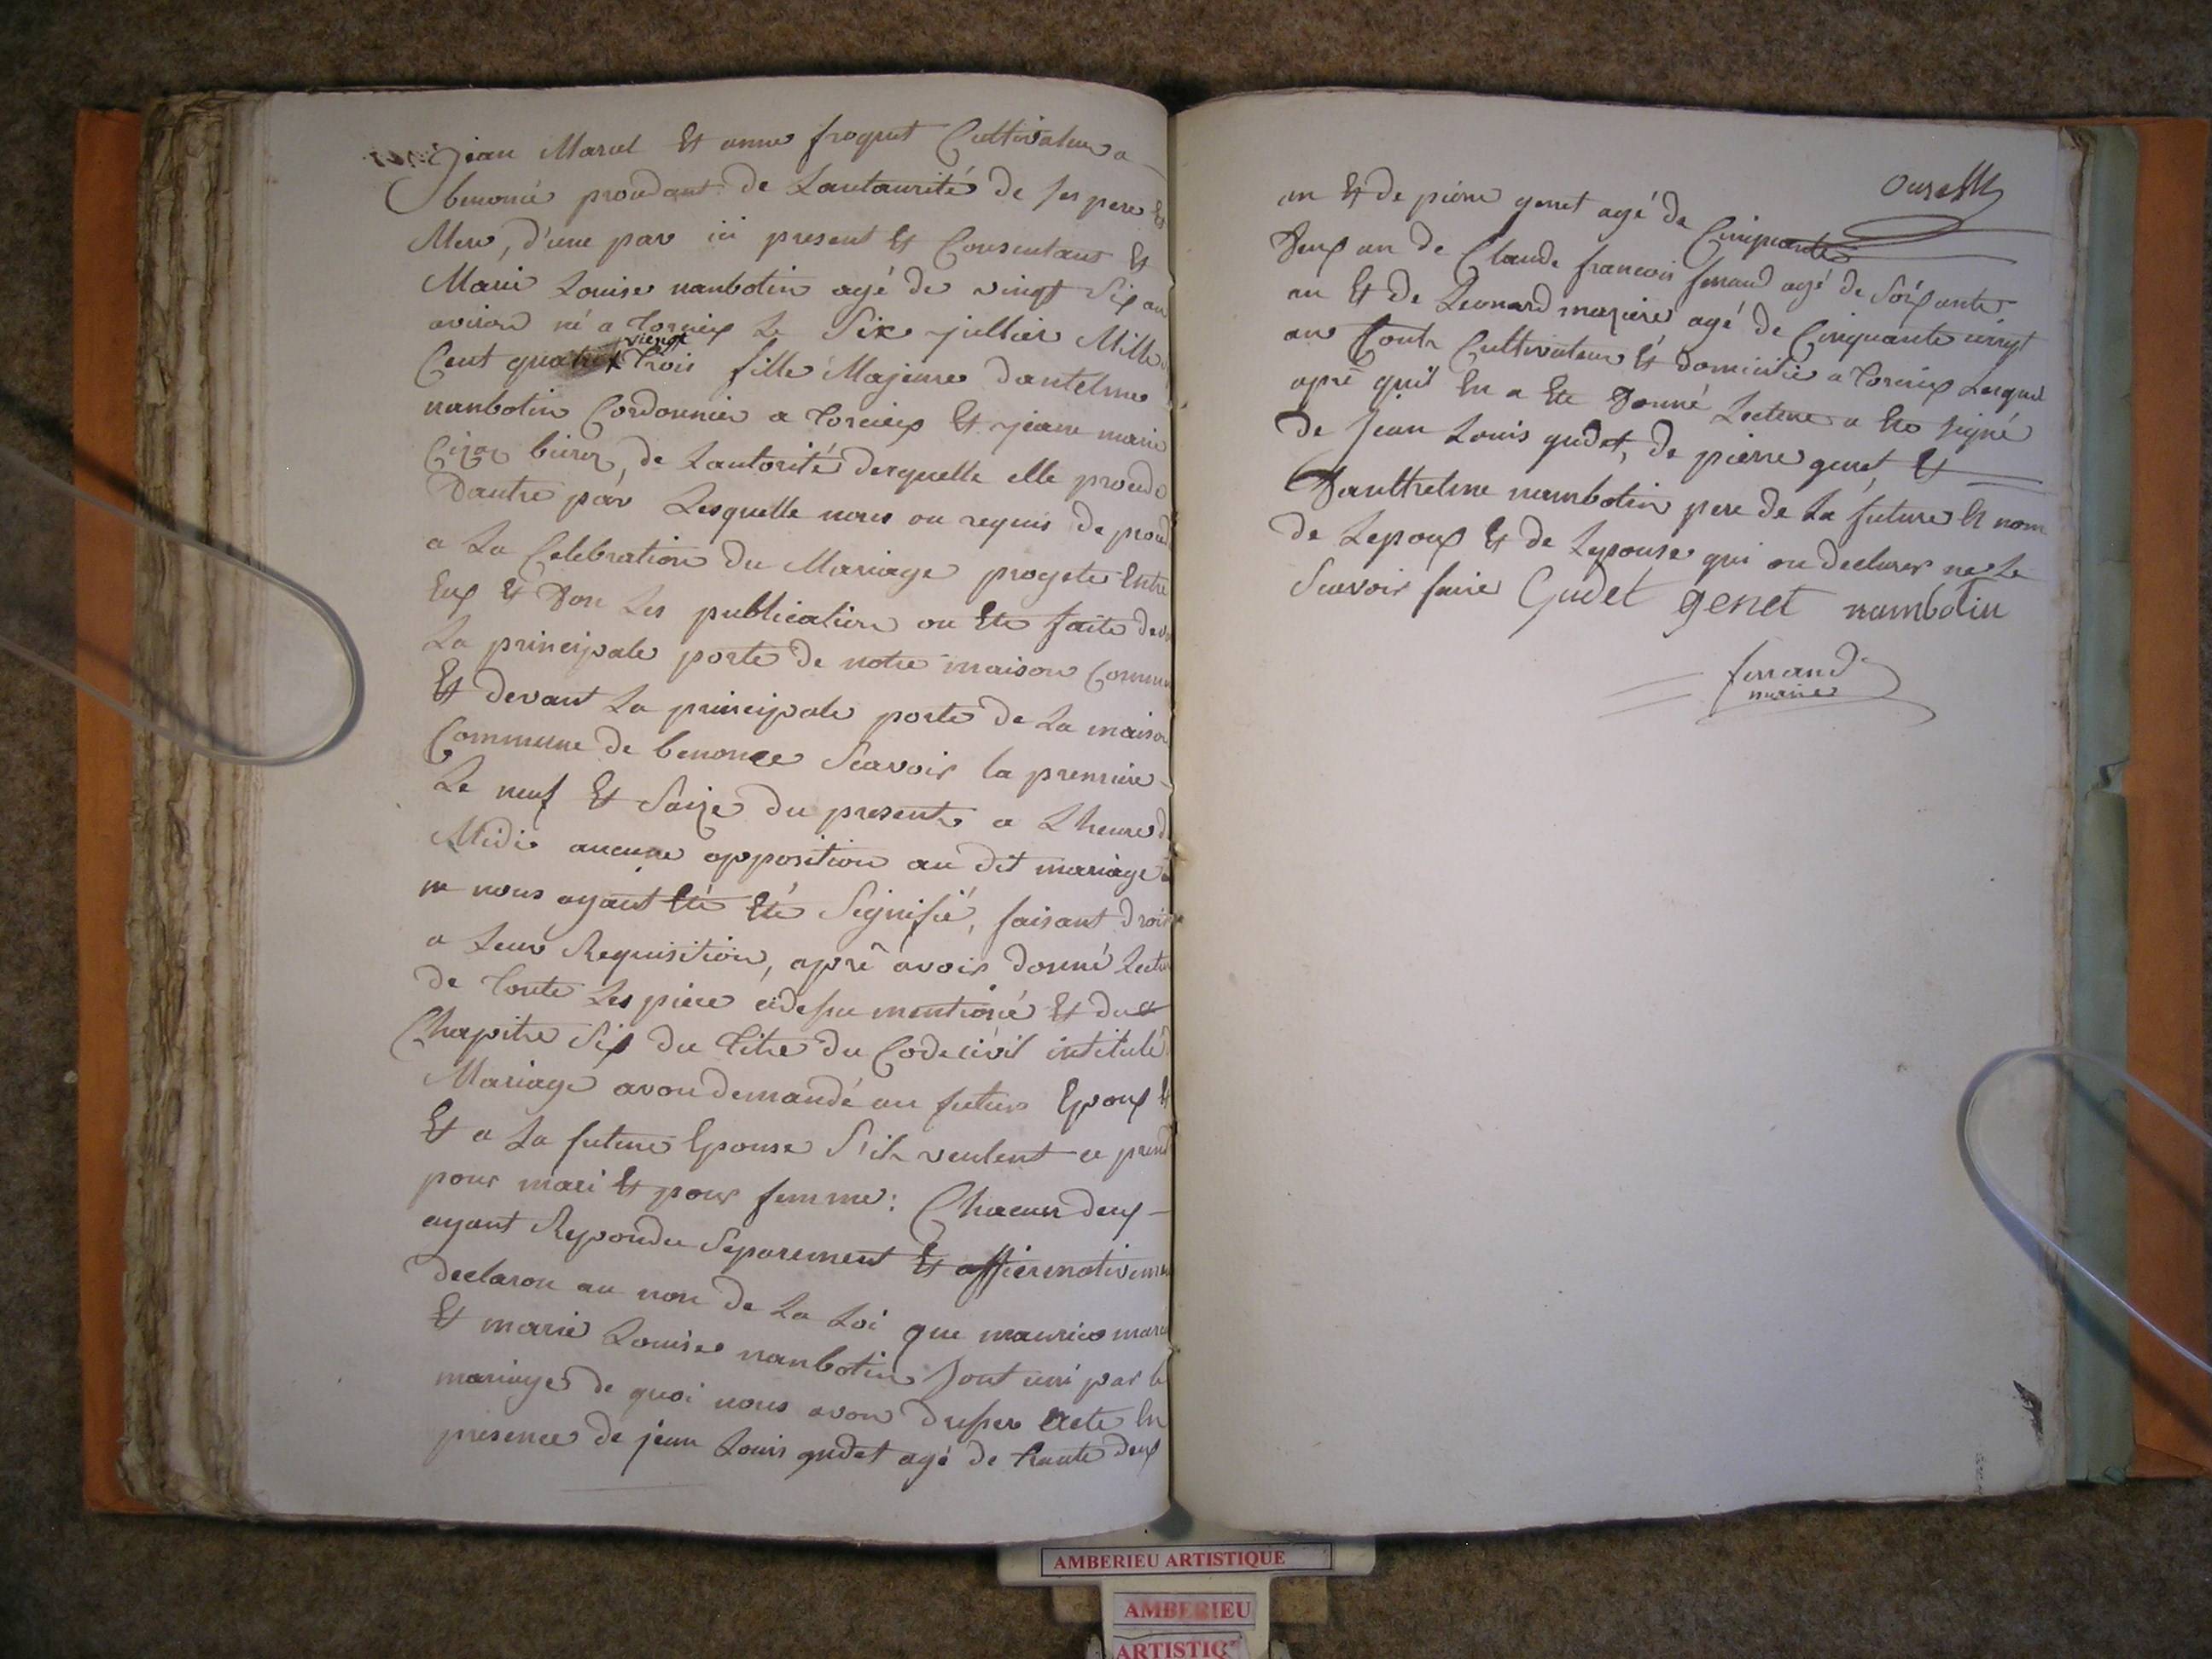 jean Marcel Et anne froquet Cultivateur a
benoncé procedant de Lautaurité de ses pere Et
Mere, d'une par ici present Et Consentant Et
Marie Louise nanbotin agé de vingt Six an
aviron né a Torcieux Le Six juillier Mille
vingt
Cent quatre Trois fille Majeure dantelme
nanbotin Cordonnier a Torcieux Et jeane marie
de Lautorité desquelle elle procede
Dautre par Lesquelle nous on requis de proced
a La Celebration du Mariage progete Entre
Eux Et Don Les publication on Ete faite dev
La principale porte de notre maison Commun
Et devant La principale porte de La maison
Commune de benonce Scavoir la premiere
Le neuf Et Saize du present a Lheure d
Midi aucune opposition au dit mariage
ne nous ayant Eté Eté Signifié, faisant droit
a Leur Requisition, aprê avoir donné Lectu
de Toute Les piece cidessu mentioné Et du
Chapitre Six du Titre du Code civil intitulé
Mariage avon demandé au futur Epoux Et
Et a La future Epouse S'ils veulent ce prend
pour mari Et pour femme: Chacun deux
ayant Repondu Separement Et affiermativeme
declaron au non de La Loi que maurice marcel
Et marie Louise nanbotin Sont uni par le
mariage de quoi nous avon dresser acte En
presence de jean Louis gudet agé de trante deux
an Et de piere genet agé de Cinquante
Deux an de Claude francois ferrand agé de Soixante
an Et de Leonard maziere agé de Cinquante vingt
an Touts Cultivateur Et domicilié a Torcieux Lesquel
aprê quil En a Ete Donné Lecture a Ete signé
de Jean Louis gudet, de pierre genet, Et
Danthelme nambotin pere de La future Et nom
de Lepoux Et de Lepouse qui on declarer ne Le
Scavoir faire Gudet genet nambotin
ferrand
maire
AMBERIEU ARTISTIQUE
AMBERIEU
ARTISTIQ